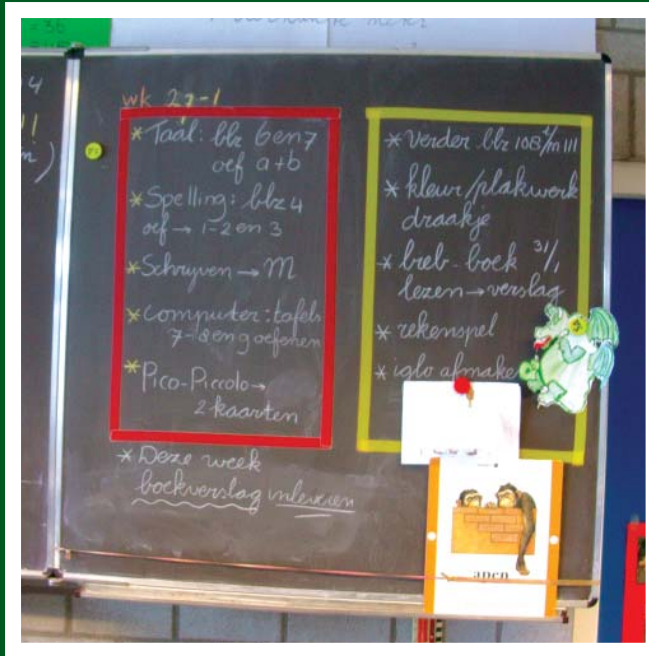 = 36
4
!!
)
wk 27-1
* Taal: blz 6 en 7
oef a+b
* Spelling: blz 4
oef → 1-2 en 3
* Schrijven → M
* Computer: tafels
7-8 en 9 oefenen
* Pico-Piccolo →
2 kaarten
* Deze week
boekverslag inleveren
* Verder blz 108 t/m 111
* kleur/plakwerk
draakje
* bieb-boek 31/1
lezen → verslag
* rekenspel
* iglo afmake
apen